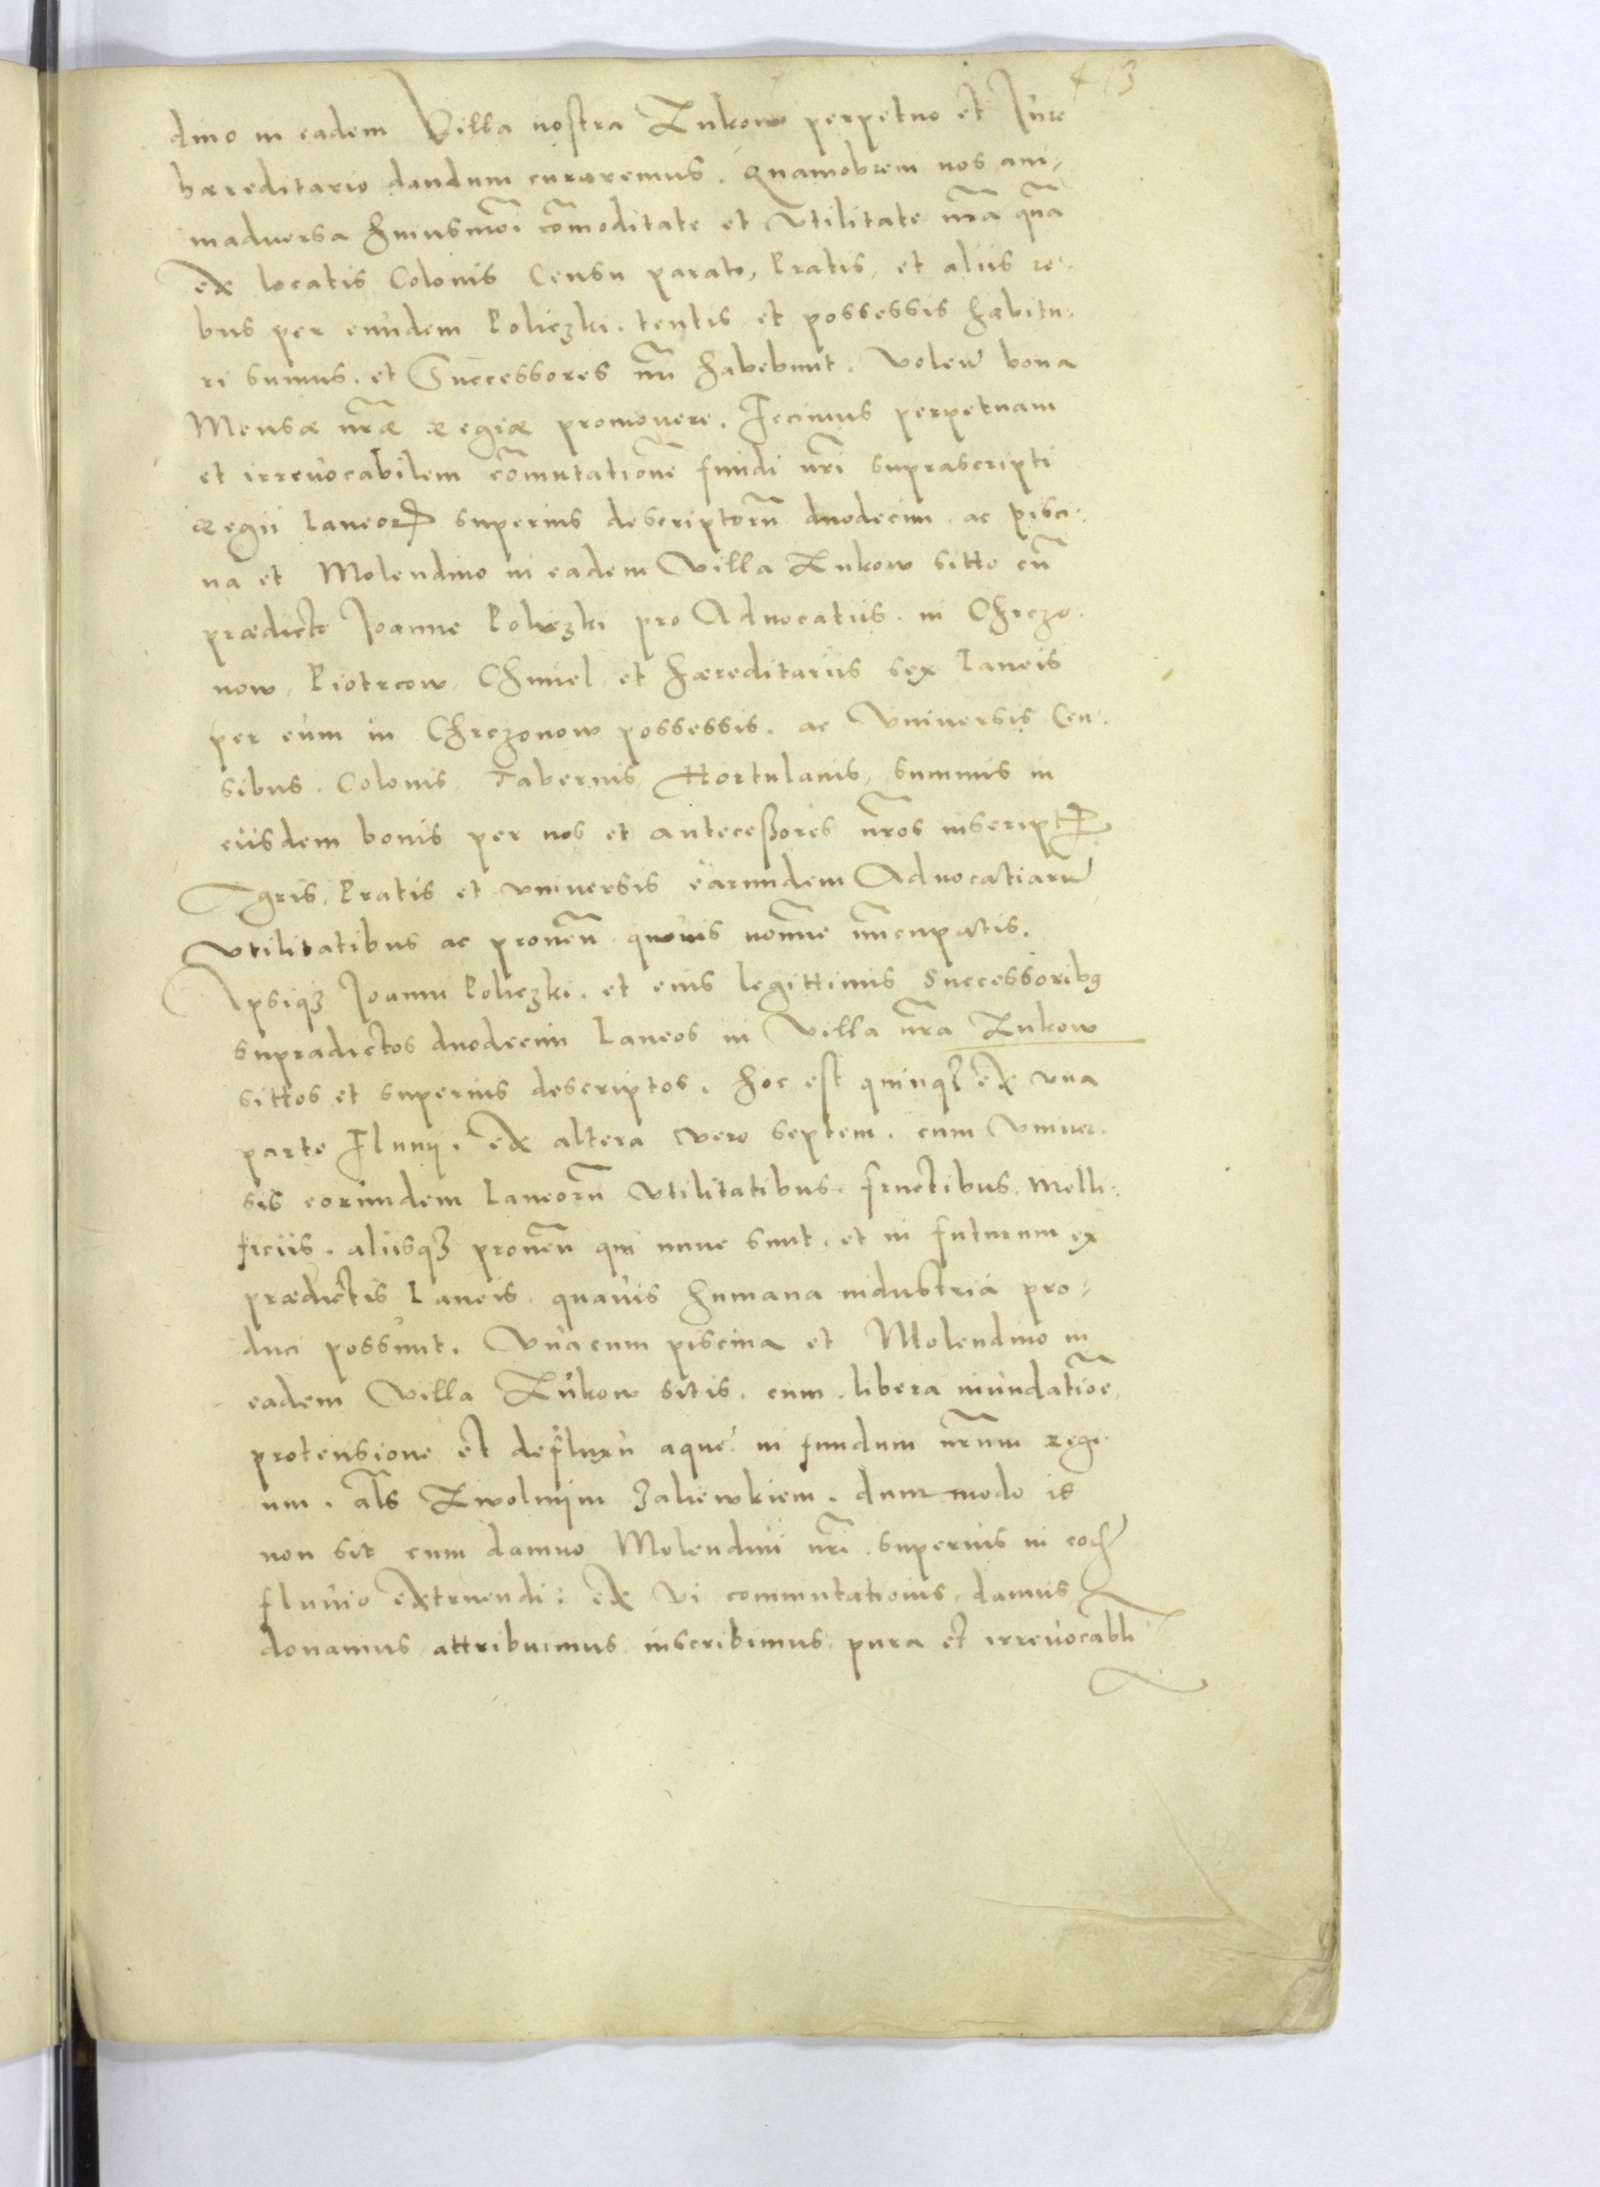 413
dino in eadem Villa nostra Zukow perpetuo et Jure
hæreditario dandum curaremus. Quamobrem nos ani-
maduersa huiusmõi cõmoditate et vtilitate nrã quã
ex locatis Colonis Censu parato, Pratis, et aliis re-
bus per eundem Policzki. tentis et possessis habitu-
ri sumus. et Successores nrĩ habebunt. Volen̄ bona
Mensæ nrãe Regiæ promouere. Fecimus perpetuam
et irreuocabilem cõmutationẽ fundi nrĩ suprascripti
Regii Laneorꝝ superius descriptorũ duodecim ac pisci-
na et Molendino in eadem Villa Zukow sitto cũ
prædicto Joanne Policzki pro Aduocatiis. in Chrczo-
now, Piotrcow, Chmiel, et hæreditariis sex Laneis
per eum in Chrczonow possessis. ac Vniuersis Cen-
sibus. Colonis Tabernis Hortulanis, summis in
eiisdem bonis per nos et anteceßores nrõs inscriptꝭ
Agris, Pratis et vniuersis earundem Aduocatiarũ
Vtilitatibus ac prouen̄ quouis noĩne nũcupatis.
Ipsiqꝫ Joanni Policzki. et eius legittimis Successoribꝰ
supradictos duodecim Laneos in Villa nrã Zukow
sittos et superius descriptos. hoc est quinqꝫ ex vna
parte Fluuij. ex altera vero septem. cum vniuer-
sis eorundem Laneorũ Vtilitatibus. fructibus. Melli-
ficiis. aliisqꝫ prouen̄ qui nunc sunt. et in futurum ex
prædictis Laneis quauis humana industria pro-
duci possunt. Vnacum piscina et Molendino in
eadem Villa Zukow sitis. cum libera inundatiõe
protensione et defluxu aquę in fundum nrũm regi-
um. als̃ Zwolnijm Zaliewkiem. dummodo is
non sit cum damno Molendini nrĩ superius in eodẽ
fluuio extruendi: ex vi commutationis damus
donamus attribuimus inscribimus pura et irreuocabli